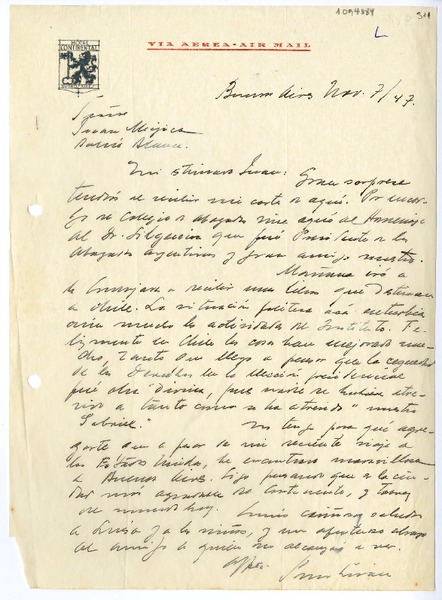 1094884
311
L
HOTEL
CONTINENTAL
VIA AEREA - AIR MAIL
Buenos Aires Nov. 7/47.
Señor
Juan Mujica
Barrio Blanco.
Mi estimado Juan: Gran sorpresa
tendrás al recibir mi carta de aquí. Por encar-
go de Colegio de Abogados vine aquí al homenaje
al Dr. que fué Presidente de los
Abogados argentinos y gran amigo nuestro.
Mañana iré a
la Embajada a recibir unos libros que destinan
a Chile. La situación política aun
mucho las actividades del Instituto. Fe-
lizmente en Chile las cosas han mejorado mu-
cho, tanto que llego a pensar que la ceguedad
de los en la elección presidencial
fué obra divina, pues nadie se hubiera atre-
vido a tanto como se ha atrevido "nuestro
Gabriel".
No tengo para qué agre-
garte que a pesar de mi reciente viaje a
los Estados Unidos, he encontrado maravilloso
a Buenos Aires. Sigo pensando que es la ciu-
dad más agradable del Continente, y
del mundo hoy.
Mis cariñosos saludos
a Luisa y a los niños, y un afectuoso abrazo
del amigo a quien no alcanzas a ver.
Affmo.